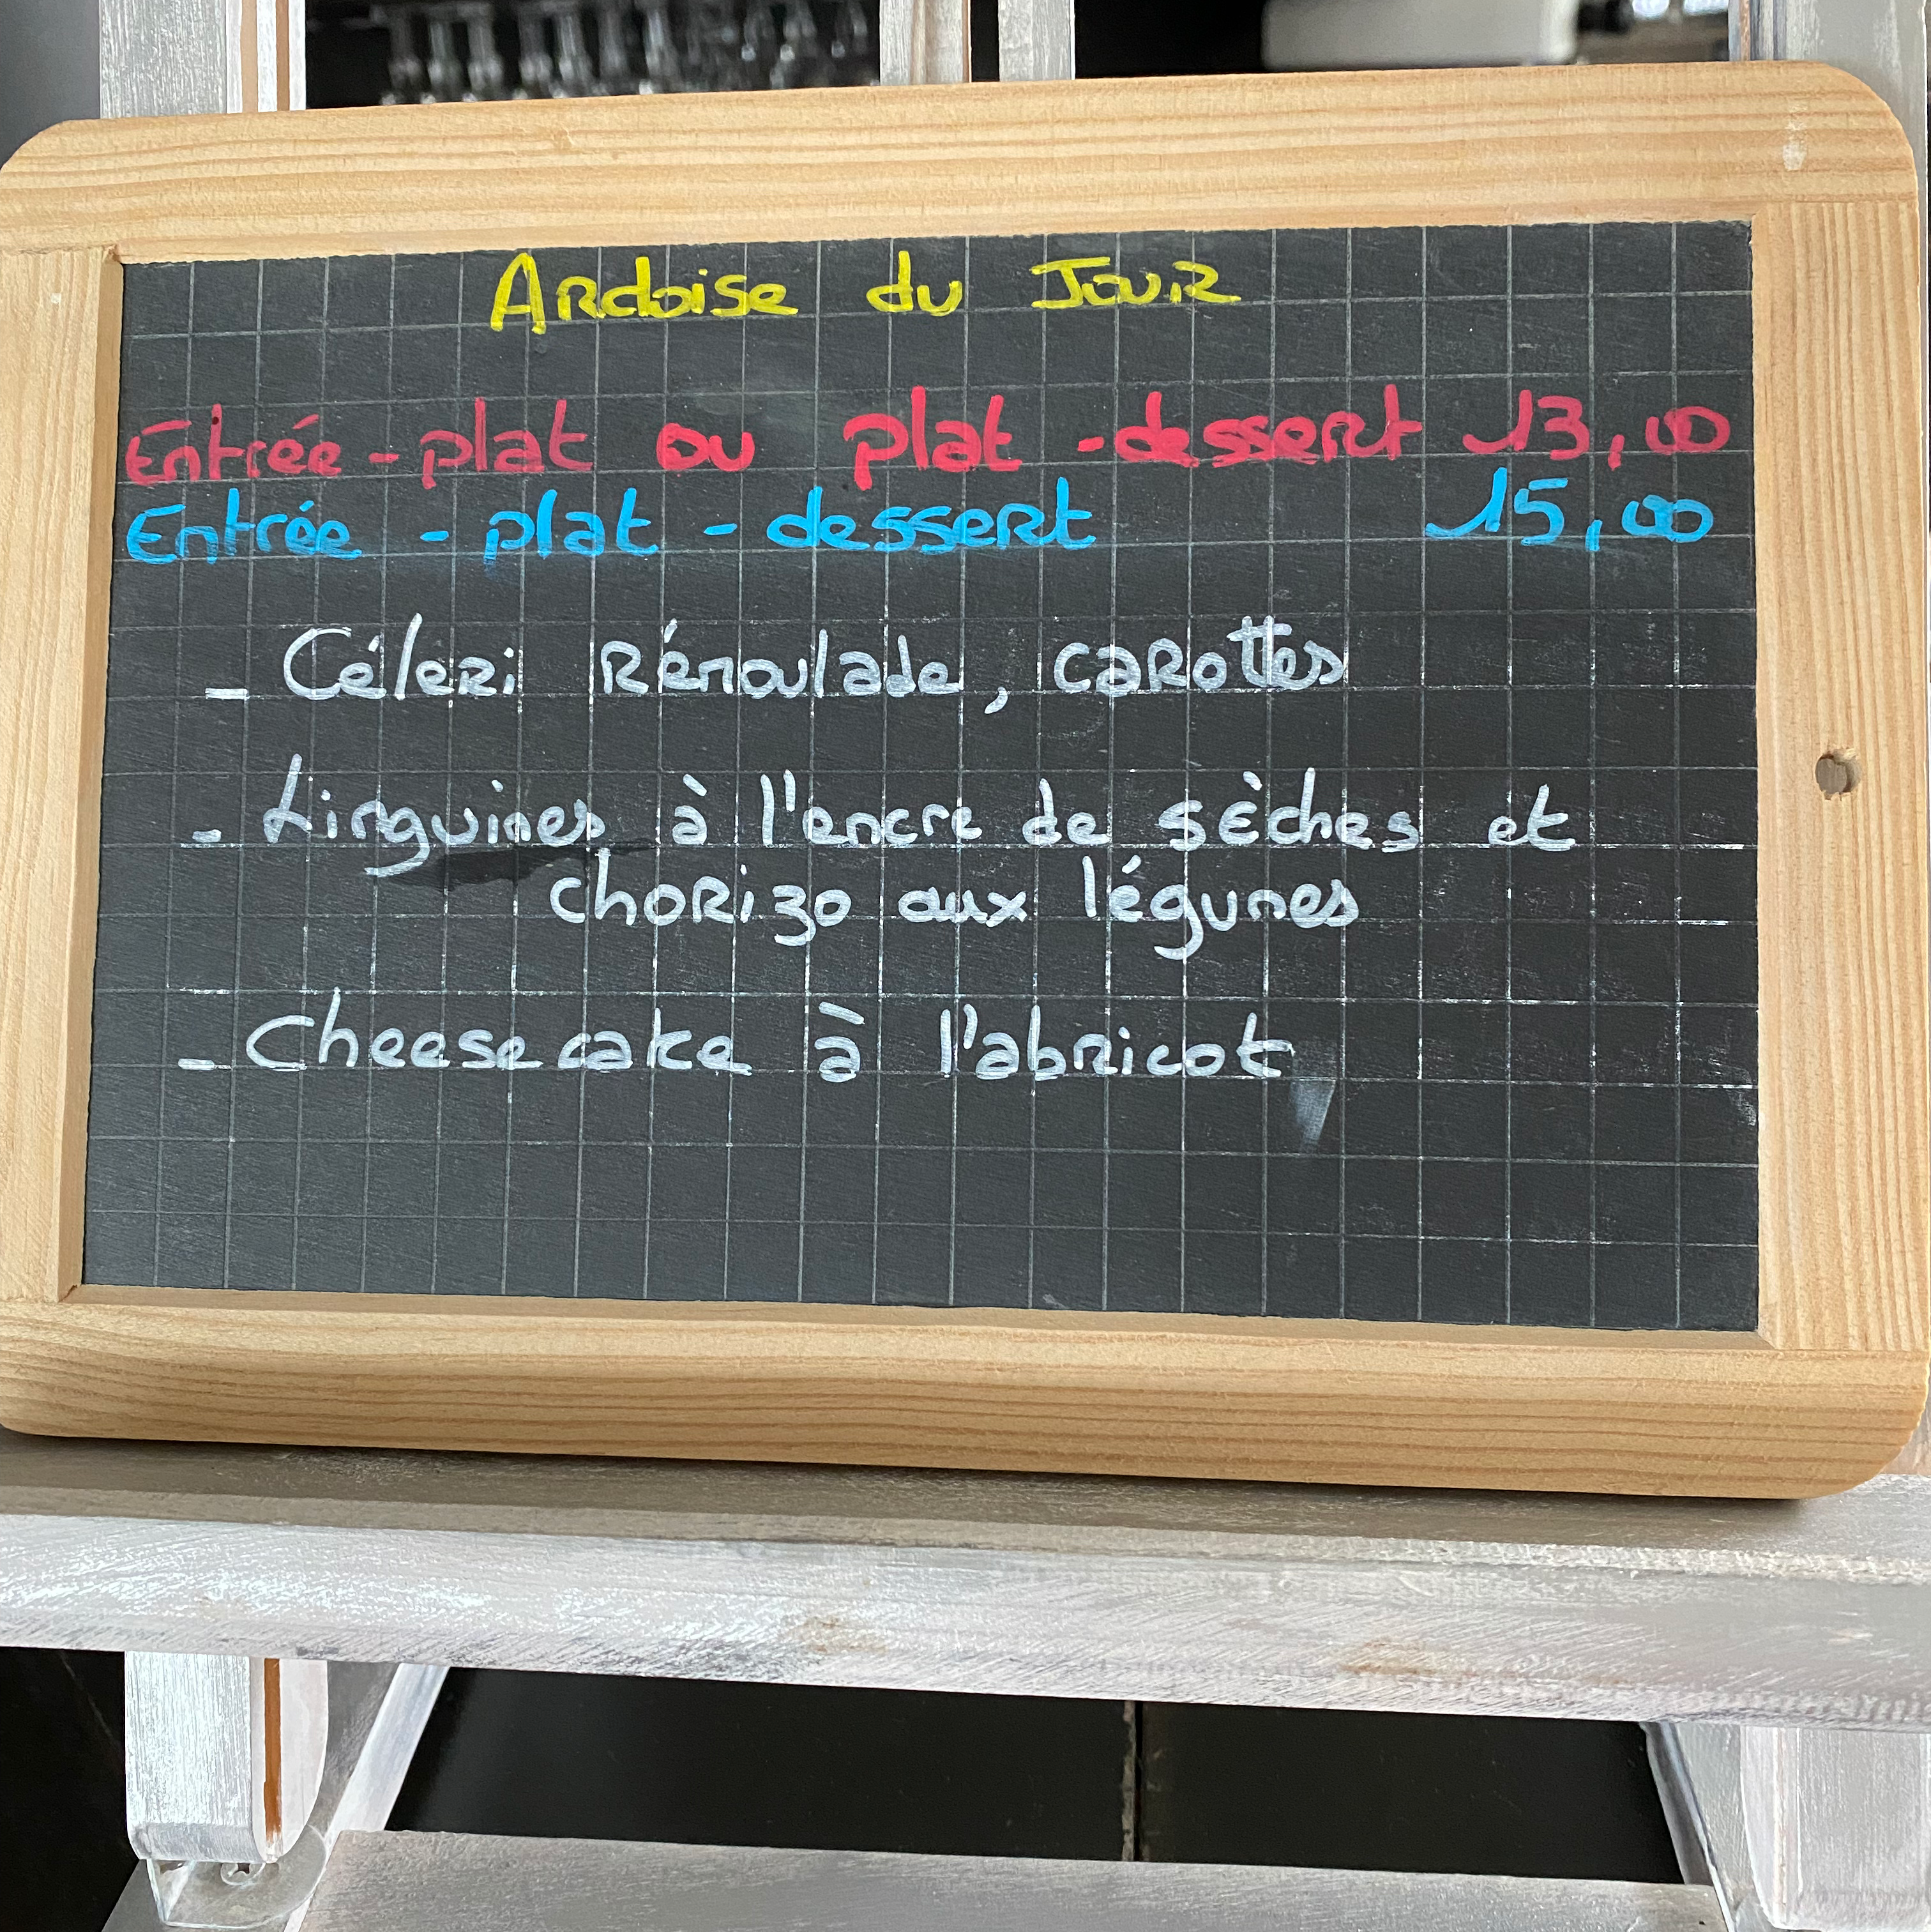 Ardoise du Jour
Entrée - plat ou plat - dessert 13,00
Entrée - plat - dessert 15,00
- Céleri Rémoulade, carottes
- Linguines à l'encre de sèches et
chorizo aux légumes
- Cheesecake à l'abricot